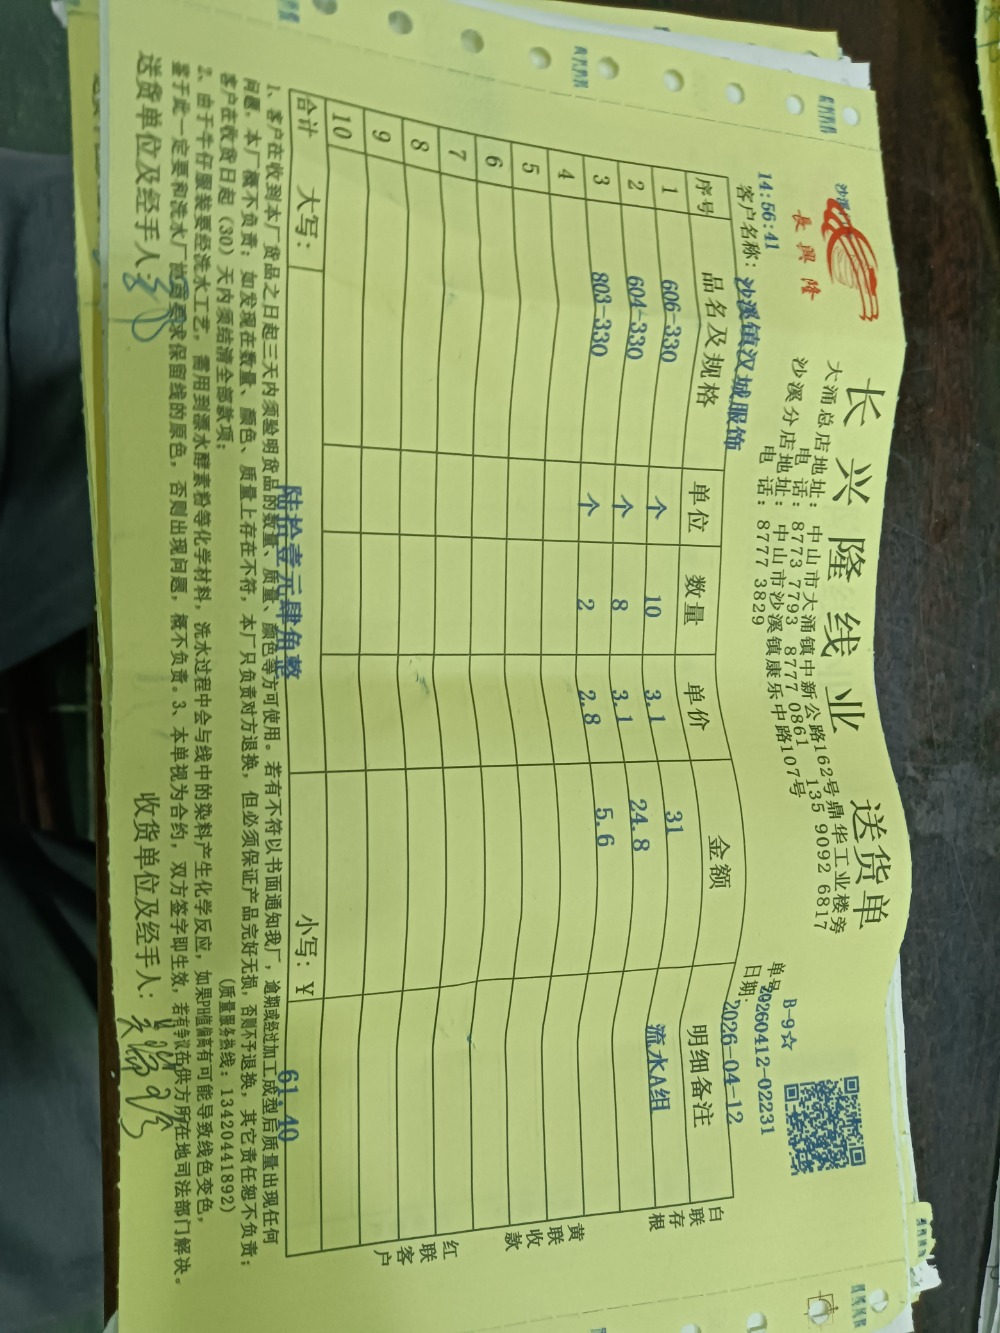 沙溪
長興隆
长兴隆线业 送货单
大涌总店地址：中山市大涌镇中新公路162号鼎华工业楼旁
电话：8773 7793 8777 0861 135 9092 6817
沙溪分店地址：中山市沙溪镇康乐中路107号
电话：8777 3829
B-9☆
单号 20260412-02231
14:56:41
日期: 2026-04-12
客户名称: 沙溪镇汉城服饰
序号 品名及规格 单位 数量 单价 金额 明细备注
1 606-330 个 10 3.1 31 流水A组
2 604-330 个 8 3.1 24.8
3 803-330 个 2 2.8 5.6
4
5
6
7
8
9
10
合计 大写: 陆拾壹元肆角整 小写: ¥ 61.40
白联存根
黄联收款
红联客户
1、客户在收到本厂货品之日起三天内须验明货品的数量、质量、颜色等方可使用。若有不符以书面通知我厂，逾期或经过加工成型后质量出现任何
问题，本厂概不负责；如发现在数量、颜色、质量上存在不符，本厂只负责对方退换，但必须保证产品完好无损，否则不予退换，其它责任恕不负责；
客户在收货日起（30）天内须结清全部款项； (质量服务热线: 13420441892)
2、由于牛仔服装要经洗水工艺，需用到漂水酵素粉等化学材料，洗水过程中会与线中的染料产生化学反应，如果PH值偏高有可能导致线色变色，
客于此一定要和洗水厂要求保留线的原色，否则出现问题，概不负责。3、本单视为合约，双方签字即生效，若有争议在供方所在地司法部门解决。
送货单位及经手人: 收货单位及经手人: